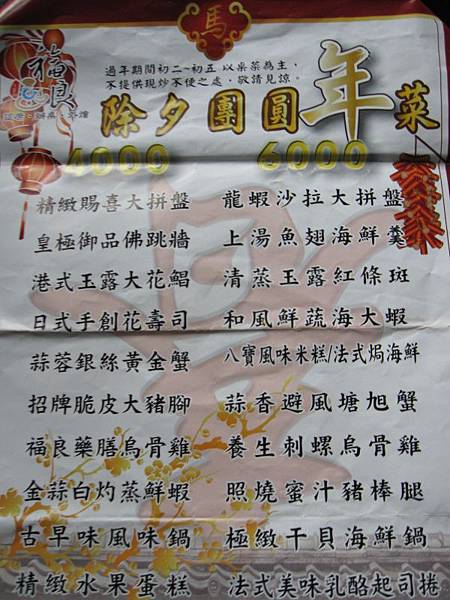 馬
福良
過年期間初二~初五 以桌菜為主,
不提供現炒不便之處,敬請見諒。
除夕團圓年菜
4000
精緻賜喜大拼盤
皇極御品佛跳牆
港式玉露大花鯧
日式手創花壽司
蒜蓉銀絲黃金蟹
招牌脆皮大豬腳
福良藥膳烏骨雞
金蒜白灼蒸鮮蝦
古早味風味鍋
精緻水果蛋糕
6000
龍蝦沙拉大拼盤
上湯魚翅海鮮羹
清蒸玉露紅條斑
和風鮮蔬海大蝦
八寶風味米糕/法式焗海鮮
蒜香避風塘旭蟹
養生刺螺烏骨雞
照燒蜜汁豬棒腿
極緻干貝海鮮鍋
法式美味乳酪起司捲